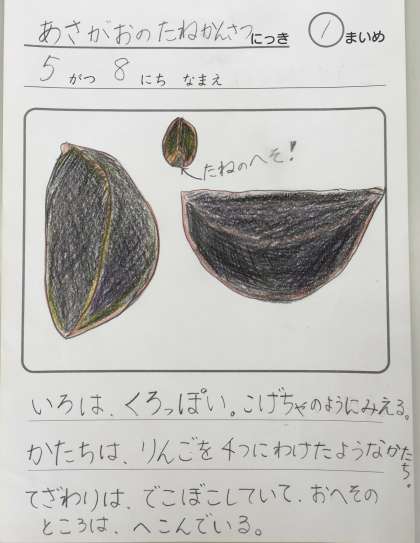 あさがおのたねかんさつにっき ① まいめ
5 がつ 8 にち なまえ
たねのへそ!
いろは、くろっぽい。こげちゃのようにみえる。
かたちは、りんごを4つにわけたようなかたち。
てざわりは、でこぼこしていて、おへその
ところは、へこんでいる。